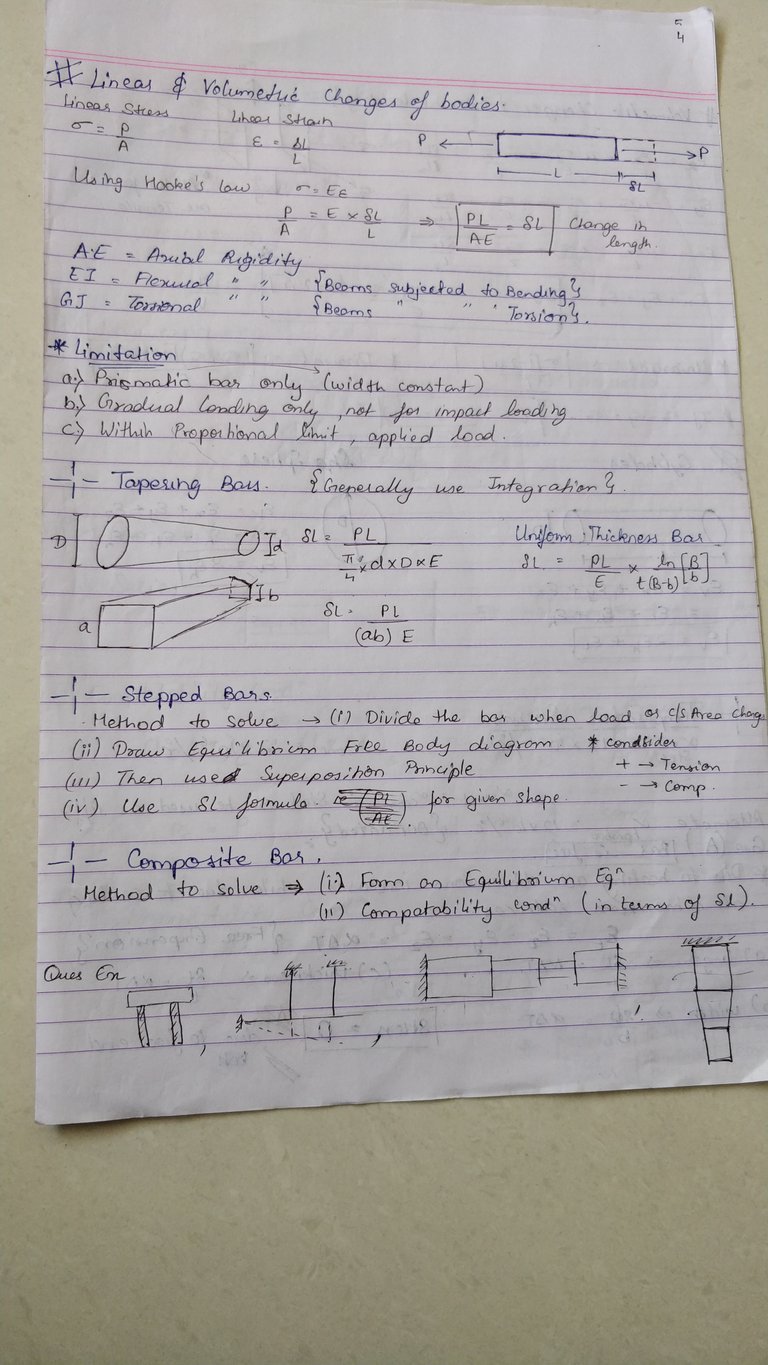 π
4
# Linear & Volumetric Changes of bodies.
Linear Stress Linear Strain
σ = P/A ε = δL/L P P
L δL
Using Hooke's law σ = Eε
P/A = E × δL/L ⇒ PL/AE = δL Change in length.
A.E = Axial Rigidity
EI = Flexural " " {Beams subjected to Bending}
GJ = Torsional " " {Beams " " " Torsion}.
* Limitation
a.) Prismatic bar only (width constant)
b.) Gradual loading only, not for impact loading
c.) Within Proportional limit, applied load.
Tapering Bars. {Generally use Integration}.
D d δL = PL / (π/4 × d × D × E) Uniform Thickness Bar
δL = PL/E × ln[B/b] / t(B-b)
a b δL = PL / (ab) E
Stepped Bars.
Method to solve → (i) Divide the bar when load or c/s Area change
(ii) Draw Equilibrium Free Body diagram * condsider
(iii) Then used Superposition Principle + → Tension
(iv) Use δL formula. (PL/AE) for given shape. - → Comp.
Composite Bar.
Method to solve ⇒ (i) Form an Equilibrium Eqⁿ
(ii) Compatability condⁿ (in terms of δL).
Ques Ex